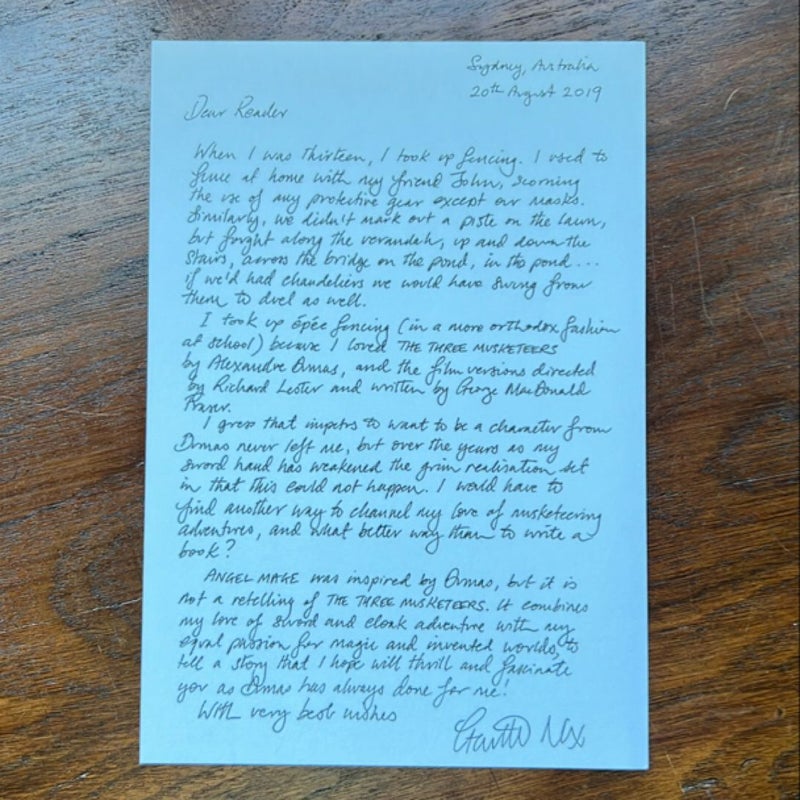 Sydney, Australia
20th August 2019
Dear Reader
When I was thirteen, I took up fencing. I used to
fence at home with my friend John, scorning
the use of any protective gear except our masks.
Similarly, we didn't mark out a piste on the lawn,
but fought along the verandah, up and down the
stairs, across the bridge on the pond, in the pond...
if we'd had chandeliers we would have swung from
them to duel as well.
I took up épée fencing (in a more orthodox fashion
at school) because I loved THE THREE MUSKETEERS
by Alexandre Dumas, and the film versions directed
by Richard Lester and written by George MacDonald
Fraser.
I guess that impetus to want to be a character from
Dumas never left me, but over the years as my
sword hand has weakened the grim realisation set
in that this could not happen. I would have to
find another way to channel my love of musketeering
adventures, and what better way than to write a
book?
ANGEL MAGE was inspired by Dumas, but it is
not a retelling of THE THREE MUSKETEERS. It combines
my love of sword and cloak adventure with my
equal passion for magic and invented worlds, to
tell a story that I hope will thrill and fascinate
you as Dumas has always done for me!
With very best wishes
Garth Nix